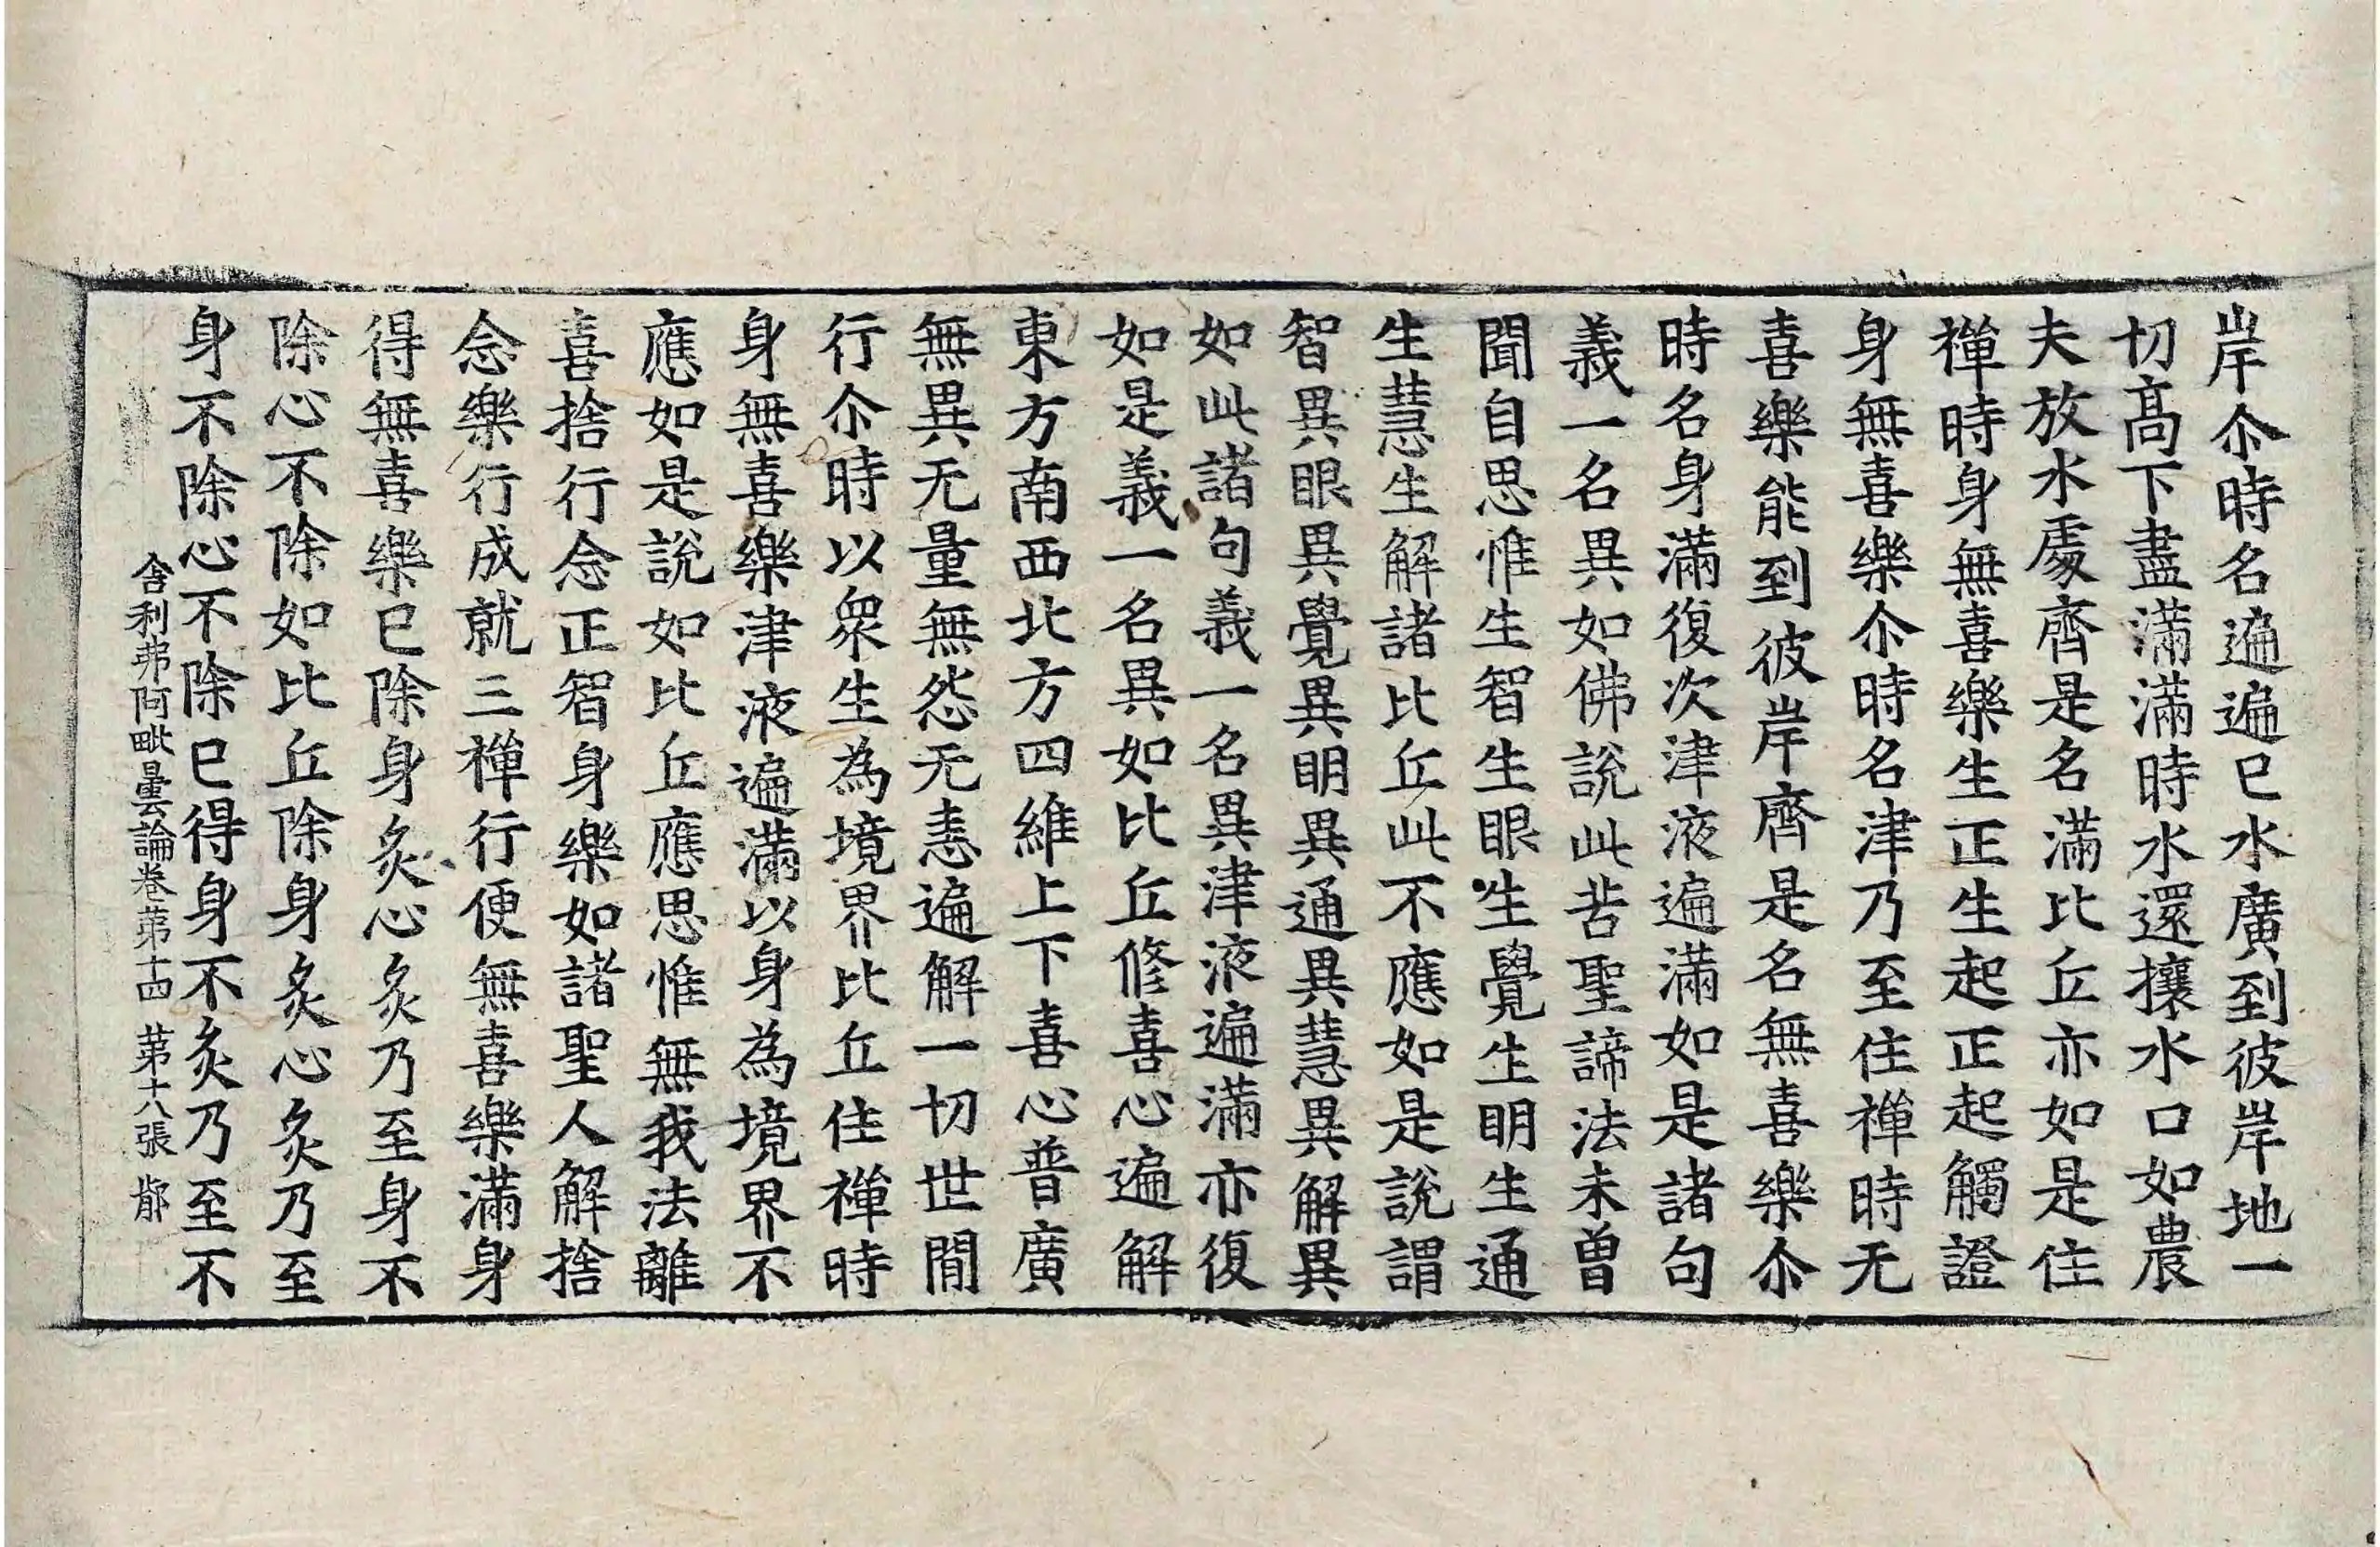 岸尒時名遍遍已水廣到彼岸地一
切髙下盡滿滿時水還攘水口如農
夫放水處齊是名滿比丘亦如是住
禪時身無喜樂生正生起正起觸證
身無喜樂尒時名津乃至住禪時无
喜樂能到彼岸齊是名無喜樂尒
時名身滿復次津液遍滿如是諸句
義一名異如佛說此苦聖諦法未曾
聞自思惟生智生眼生覺生明生通
生慧生解諸比丘此不應如是說謂
智異眼異覺異明異通異慧異解異
如此諸句義一名異津液遍滿亦復
如是義一名異如比丘修喜心遍解
東方南西北方四維上下喜心普廣
無異无量無怨无恚遍解一切世間
行尒時以衆生為境界比丘住禪時
身無喜樂津液遍滿以身為境界不
應如是說如比丘應思惟無我法離
喜捨行念正智身樂如諸聖人解捨
念樂行成就三禪行便無喜樂滿身
得無喜樂已除身炙心炙乃至身不
除心不除如比丘除身炙心炙乃至
身不除心不除已得身不炙乃至不
舍利弗阿毗曇論卷苐十四 苐十八張